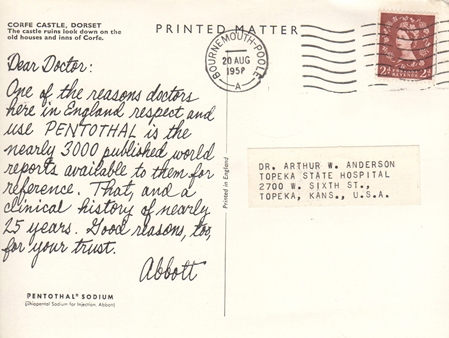 CORFE CASTLE, DORSET
The castle ruins look down on the
old houses and inns of Corfe.
PRINTED MATTER
BOURNEMOUTH-POOLE
20 AUG
195
A
2d 2d
Dear Doctor:
One of the reasons doctors
here in England respect and
use PENTOTHAL is the
nearly 3000 published world
reports available to them for
reference. That, and a
clinical history of nearly
25 years. Good reasons, too,
for your trust.
Abbott
PENTOTHAL® SODIUM
(Thiopental Sodium for Injection, Abbott)
Printed in England
DR. ARTHUR W. ANDERSON
TOPEKA STATE HOSPITAL
2700 W. SIXTH ST.,
TOPEKA, KANS., U.S.A.